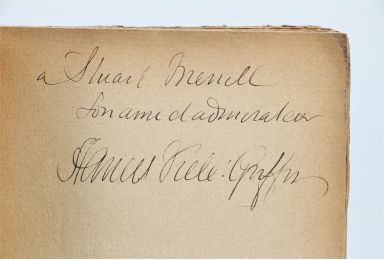 a Stuart Merrill
son ami et admirateur
Francis Vielé-Griffin